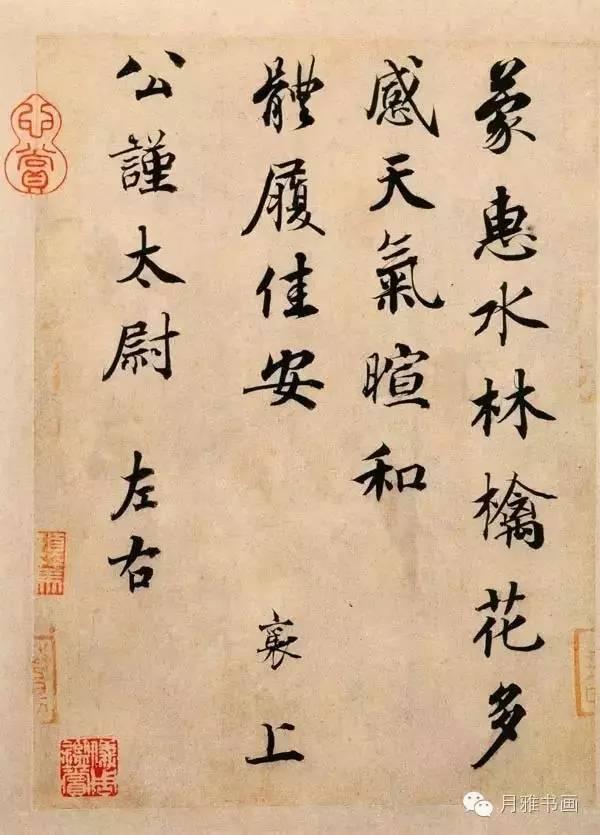 蒙惠水林檎花多
感天氣暄和
體履佳安 襄上
公謹太尉 左右
月雅书画